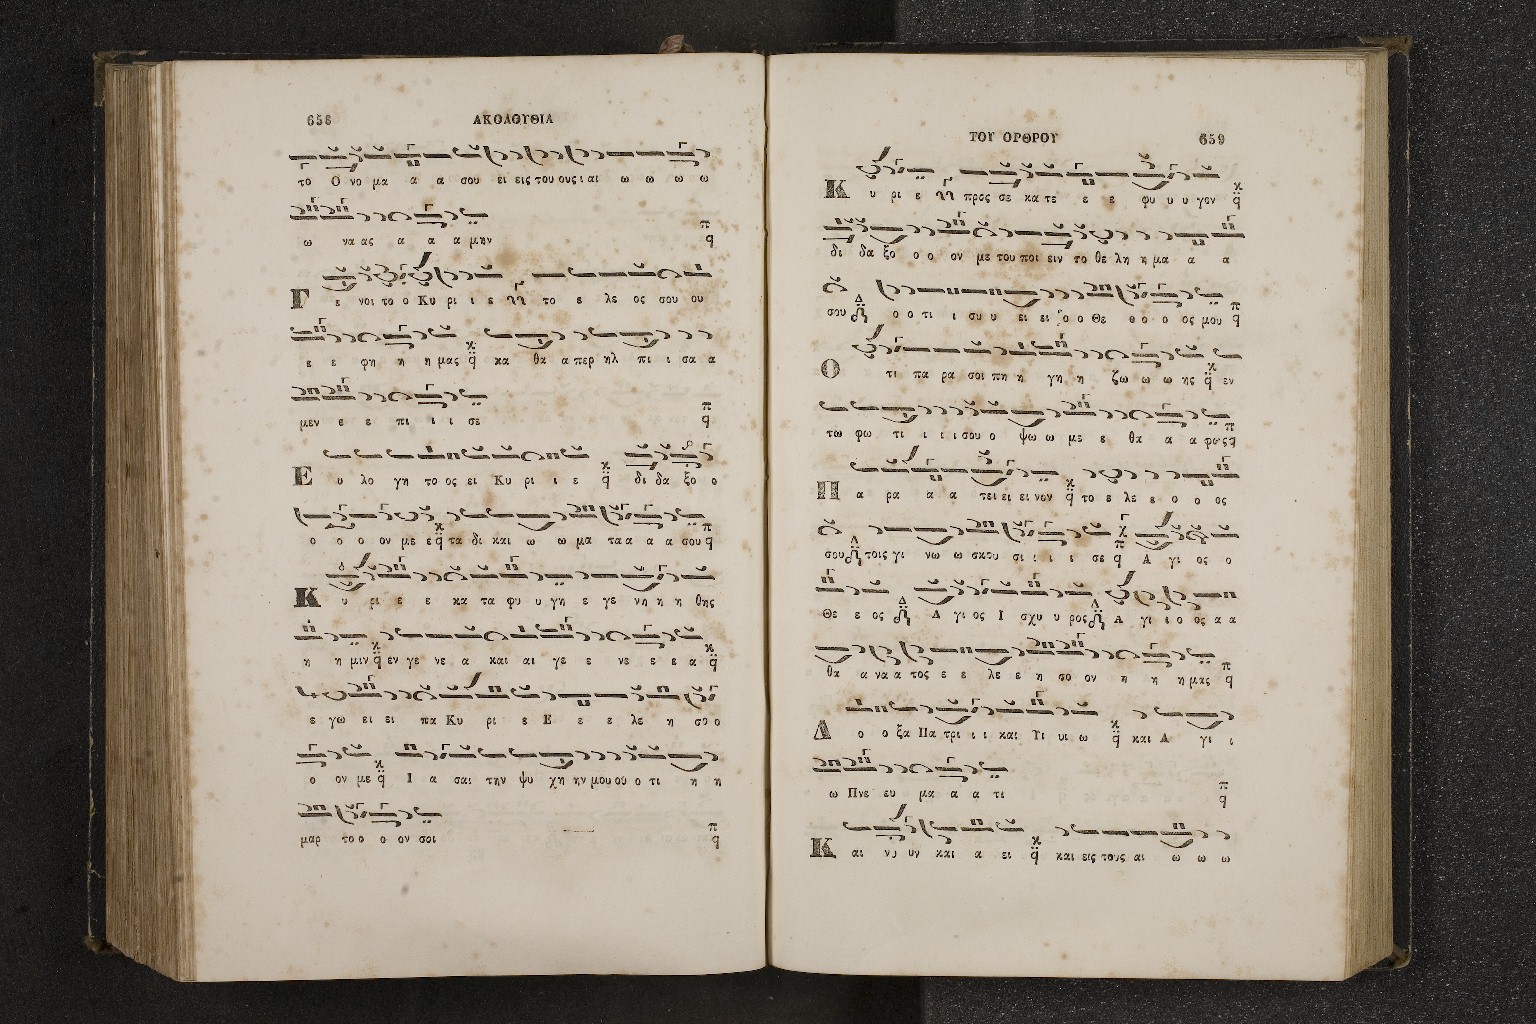 658
ΑΚΟΛΟΥΘΙΑ
το Ο νο μα α α σου ει εις του ους ι αι ω ω ω ω
ω να ας α α α μην
Γ ε νοι το ο Κυ ρι ι ε το ε λε ος σου ου
ε ε φη η η μας κα θα α περ ηλ πι ι σα α
μεν ε ε πι ι ι σε
Ε υ λο γη το ος ει Κυ ρι ι ε δι δα ξο ο
ο ο ο ον με ε τα δι και ω ω μα τα α α α σου
Κ υ ρι ε ε κα τα φυ υ γη ε γε νη η η θης
η η μιν εν γε νε α και αι γε ε νε ε ε α
ε γω ει ει πα Κυ ρι ε Ε ε ε λε η σο ο
ο ον με Ι α σαι την ψυ χη ην μου ου ο τι η η
μαρ το ο ο ον σοι
ΤΟΥ ΟΡΘΡΟΥ
659
Κ υ ρι ε προς σε κα τε ε ε φυ υ υ γον
δι δα ξο ο ο ον με του ποι ειν το θε λη η μα α α
σου ο ο τι ι συ υ ει ει ο ο Θε ο ο ο ος μου
Ο τι πα ρα σοι πη η γη η ζω ω ω ης εν
τω φω τι ι ι ι σου ο ψω ω με ε θα α α φως
Π α ρα α α τει ει ει νον το ε λε ε ο ο ος
σου τοις γι νω ω σκου σι ι ι ι σε Α γι ος ο
Θε ε ος Α γι ος Ι σχυ υ ρος Α γι ι ο ος α α
θα α να α τος ε ε λε ε η σο ον η η η μας
Δ ο ο ξα Πα τρι ι ι και Υι υι ω και Α γι ι
ω Πνε ευ μα α α τι
Κ αι νυ υν και α ει και εις τους αι ω ω ω